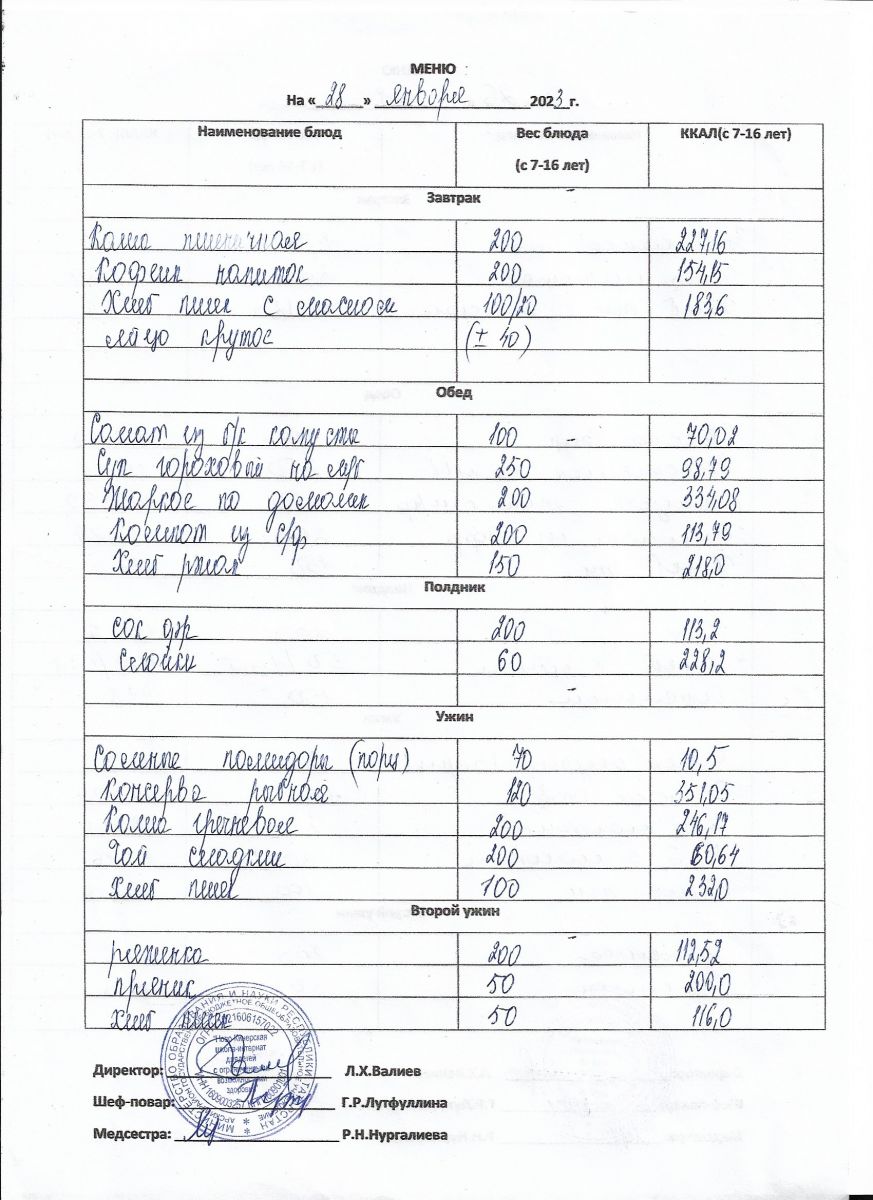 МЕНЮ
На « 28 » января 2023 г.
Наименование блюд Вес блюда (с 7-16 лет) ККАЛ(с 7-16 лет)
Завтрак
Каша пшеничная 200 227,16
Кофейн напиток 200 154,15
Хлеб пшен с маслом 100/20 183,6
яйцо крутое (± 40)
Обед
Салат из б/к капусты 100 - 70,02
Суп гороховый на м/б 250 98,79
Жаркое по домашн 200 334,08
Компот из с/ф 200 113,79
Хлеб ржан 150 218,0
Полдник
сок фр 200 113,2
слойки 60 228,2
Ужин
Соленые помидоры (порц) 70 10,5
Консерва рыбная 120 351,05
Каша гречневая 200 246,17
Чай сладкий 200 60,64
Хлеб пшен 100 232,0
Второй ужин
ряженка 200 112,52
пряник 50 200,0
Хлеб пшен 50 116,0
Директор: Л.Х.Валиев
Шеф-повар: Г.Р.Лутфуллина
Медсестра: Р.Н.Нургалиева
"Ново-Кинерская
школа-интернат
для детей
с ограниченными
возможностями
здоровья"